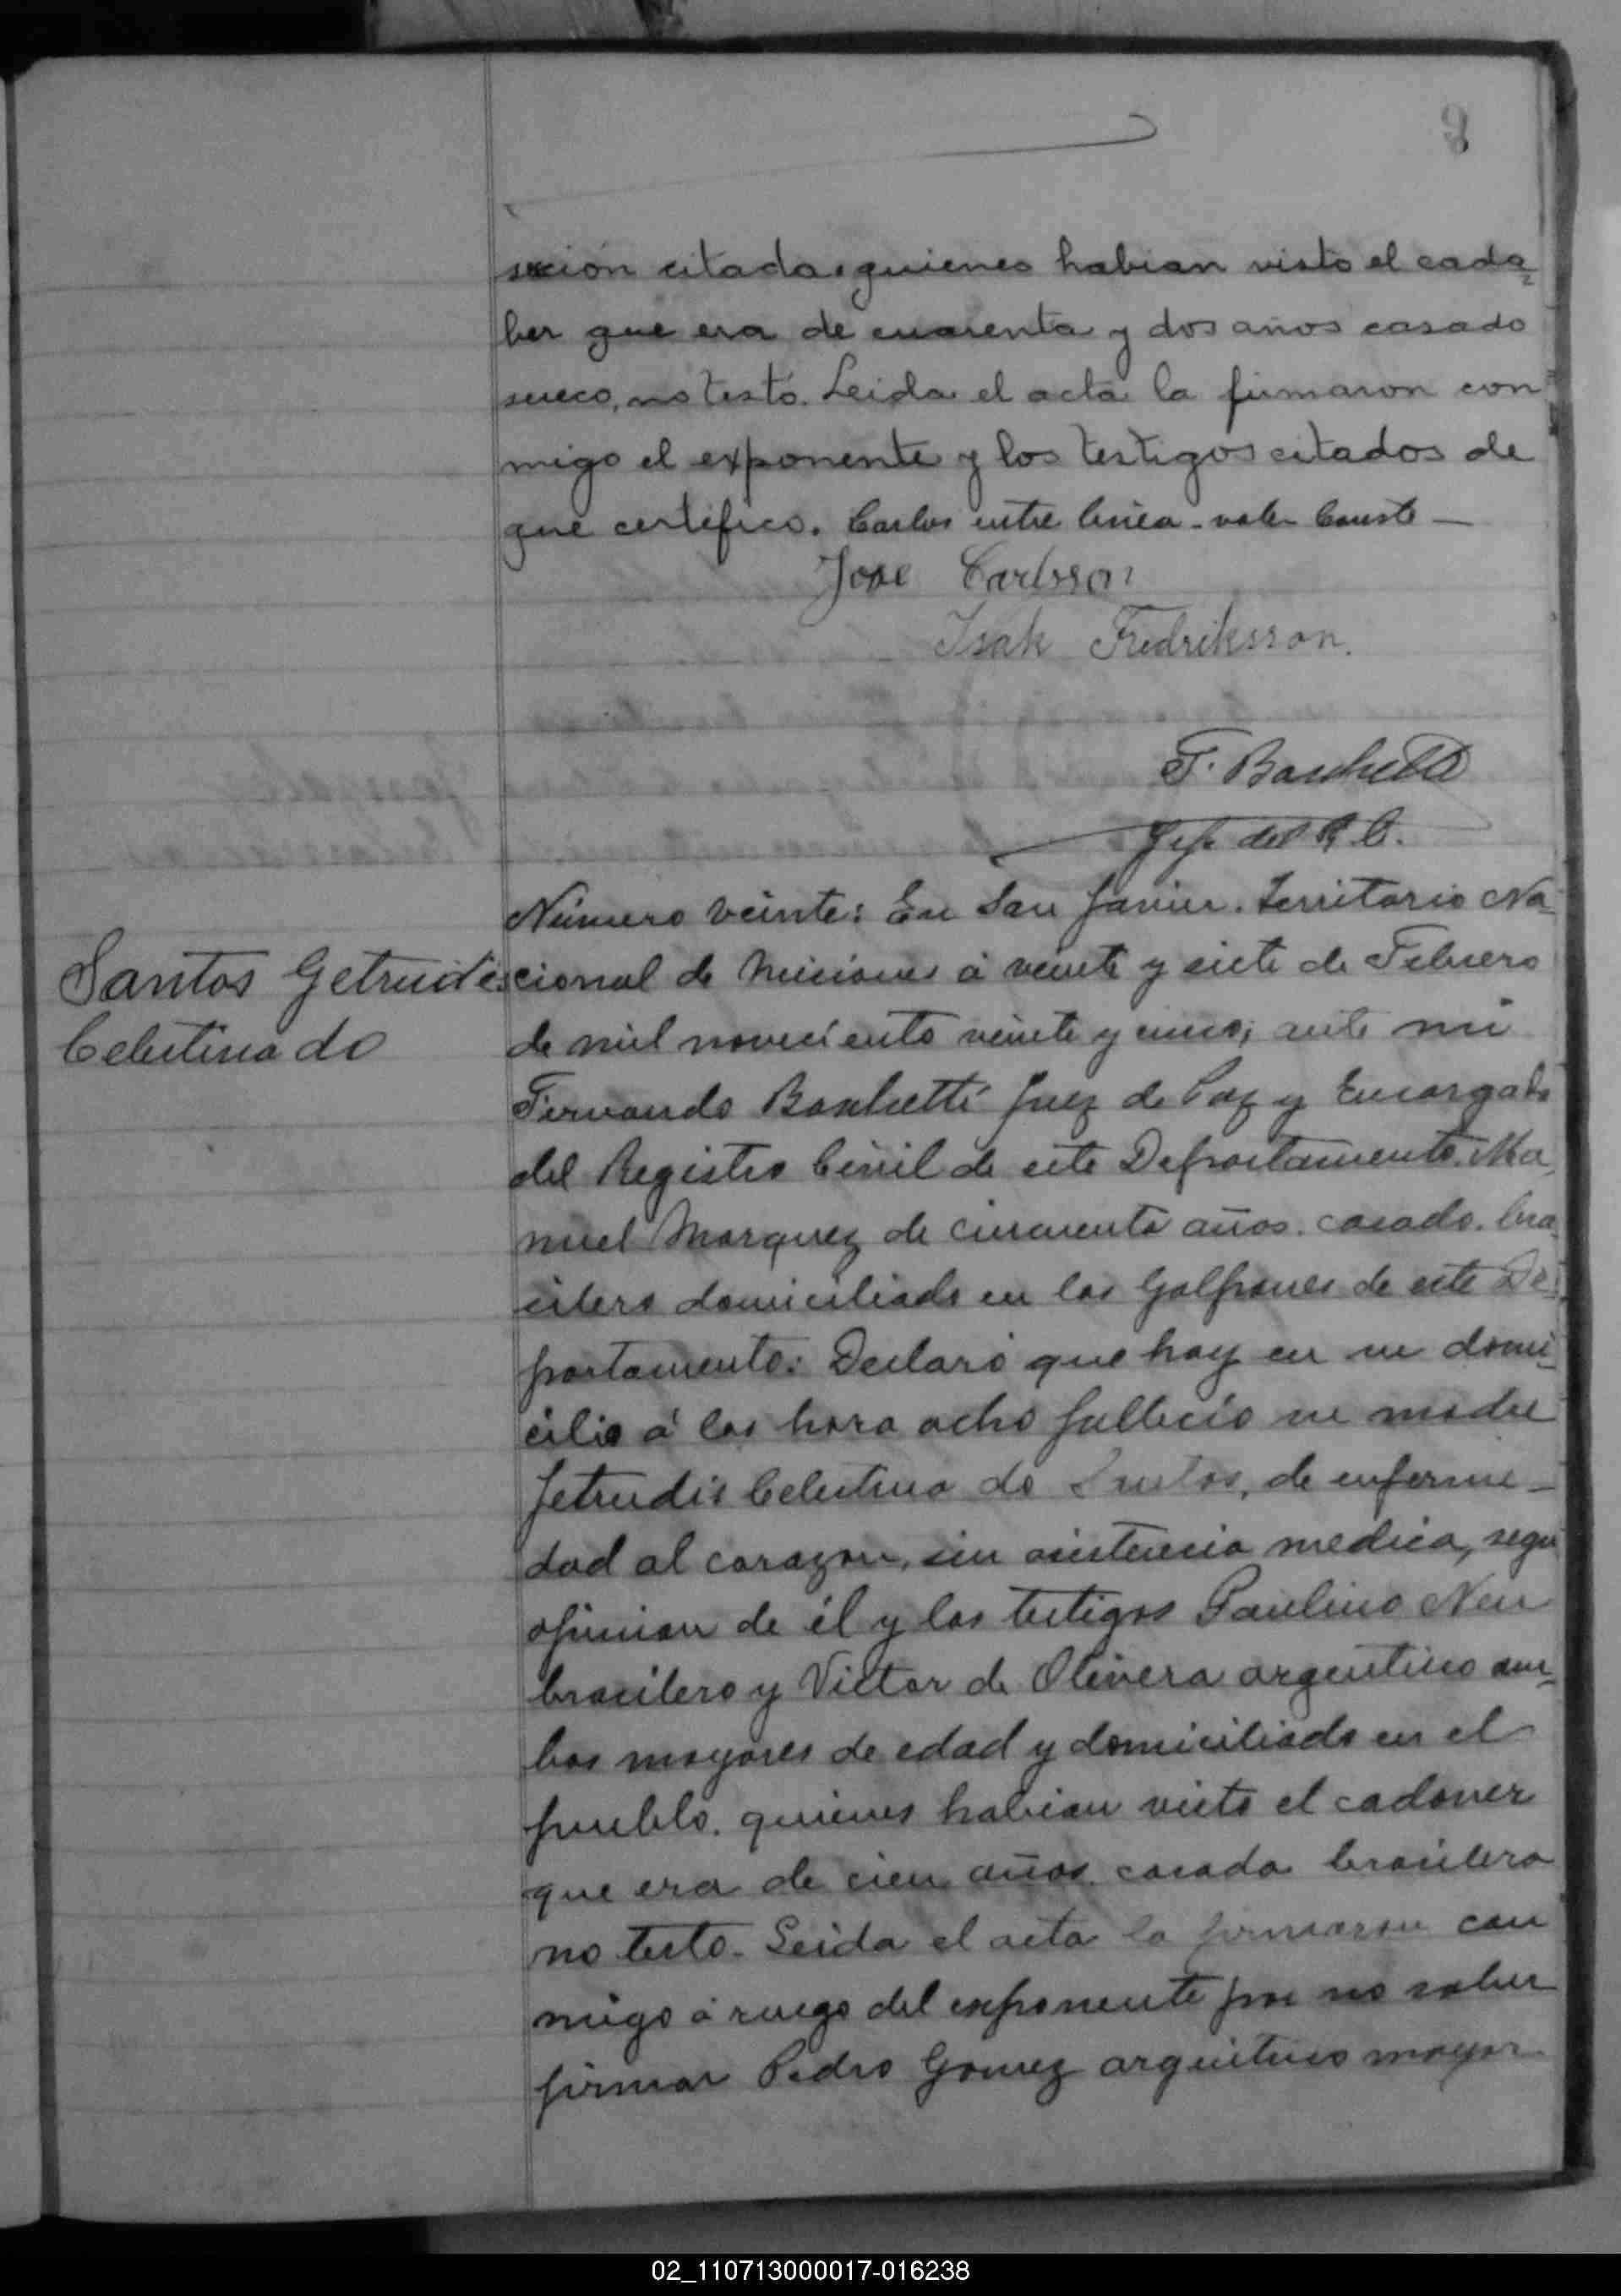 9
sección citada, quienes habian visto el cada=
ber que era de cuarenta y dos años casado
sueco, no testó. Leida el acta la firmaron con
migo el exponente y los testigos citados de
que certifico. Carlos entre linea - vale Conste —
Jose Carlsson
Isak Fredriksson.
F. Boschetti
Jefe del R. C.
Número veinte: En San Javier. Territorio Na-
Santos Getrudis
Celestina do
cional de Misiones á veinte y siete de Febrero
de mil noveciento veinte y cinco; ante mi
Fernando Boschetti Juez de Paz y Encargado
del Registro Civil de este Departamento. Ma-
nuel Marquez de cincuenta años. casado. bra-
silero domiciliado en los Galpones de este De-
partamento: Declaró que hoy en su domi-
cilio á las hora ocho fallecio su madre
Jetrudis Celestina do Santos, de enferme-
dad al corazon, sin asistencia medica, segun
opinion de él y los testigos Paulino Neu
brasilero y Victor de Olivera argentino am-
bos mayores de edad y domiciliado en el
pueblo. quienes habian visto el cadaver
que era de cien años. casada brasilera
no testo. Leida el acta la firmaron con
migo á ruego del exponente por no saber
firmar Pedro Gomez argentino mayor
02_110713000017-016238